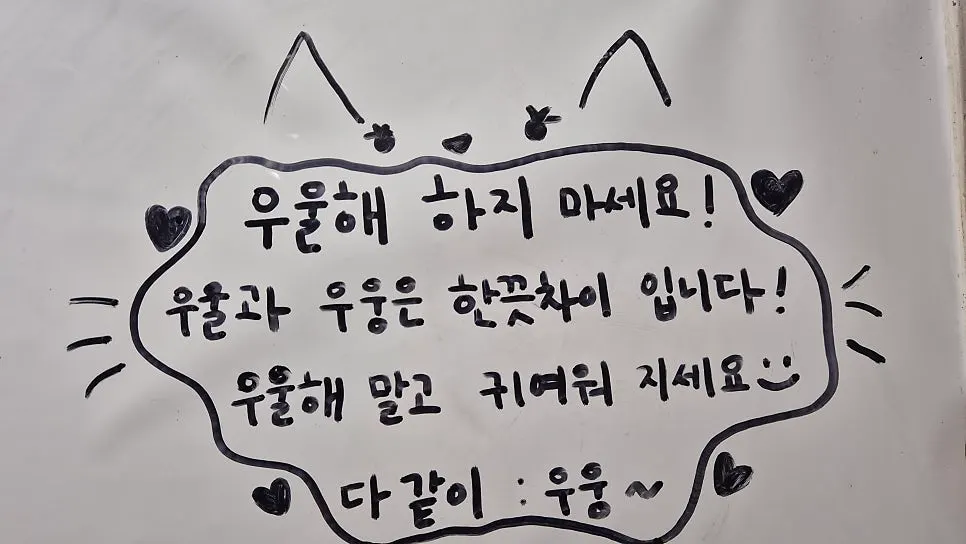 우울해 하지 마세요!
우울과 우웅은 한끗차이 입니다!
우울해 말고 귀여워 지세요
다같이 : 우웅~